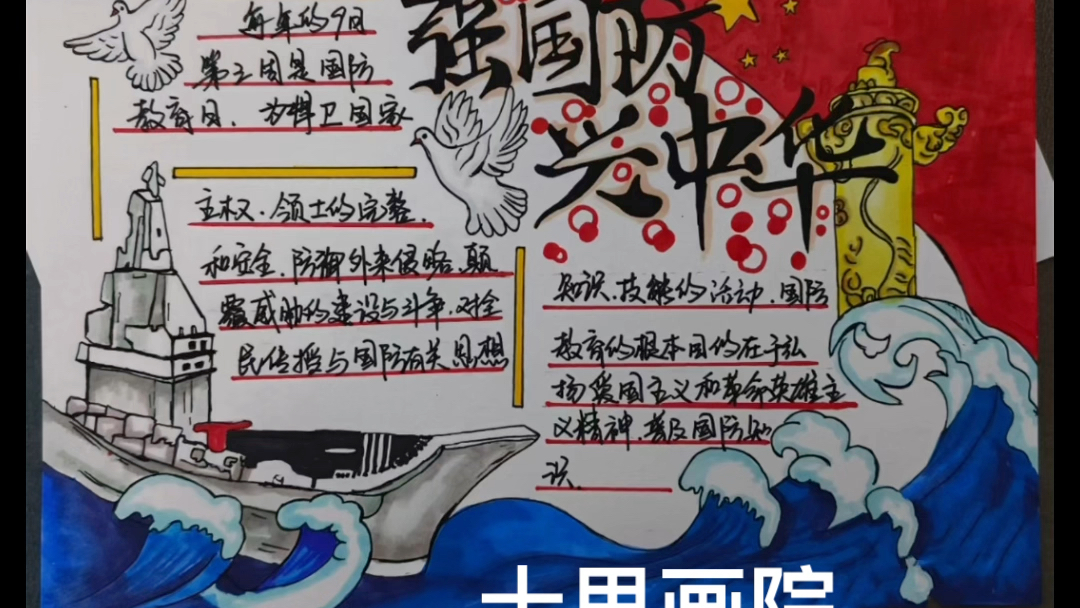 强国防
兴中华
每年的9日
第三周是国防
教育日、为捍卫国家
主权、领土的完整、
和安全、防御外来侵略、颠
覆威胁的建设与斗争、对全
民传授与国防有关思想
知识、技能的活动、国防
教育的根本目的在于弘
扬爱国主义和革命英雄主
义精神、普及国防知
识、
十里画院